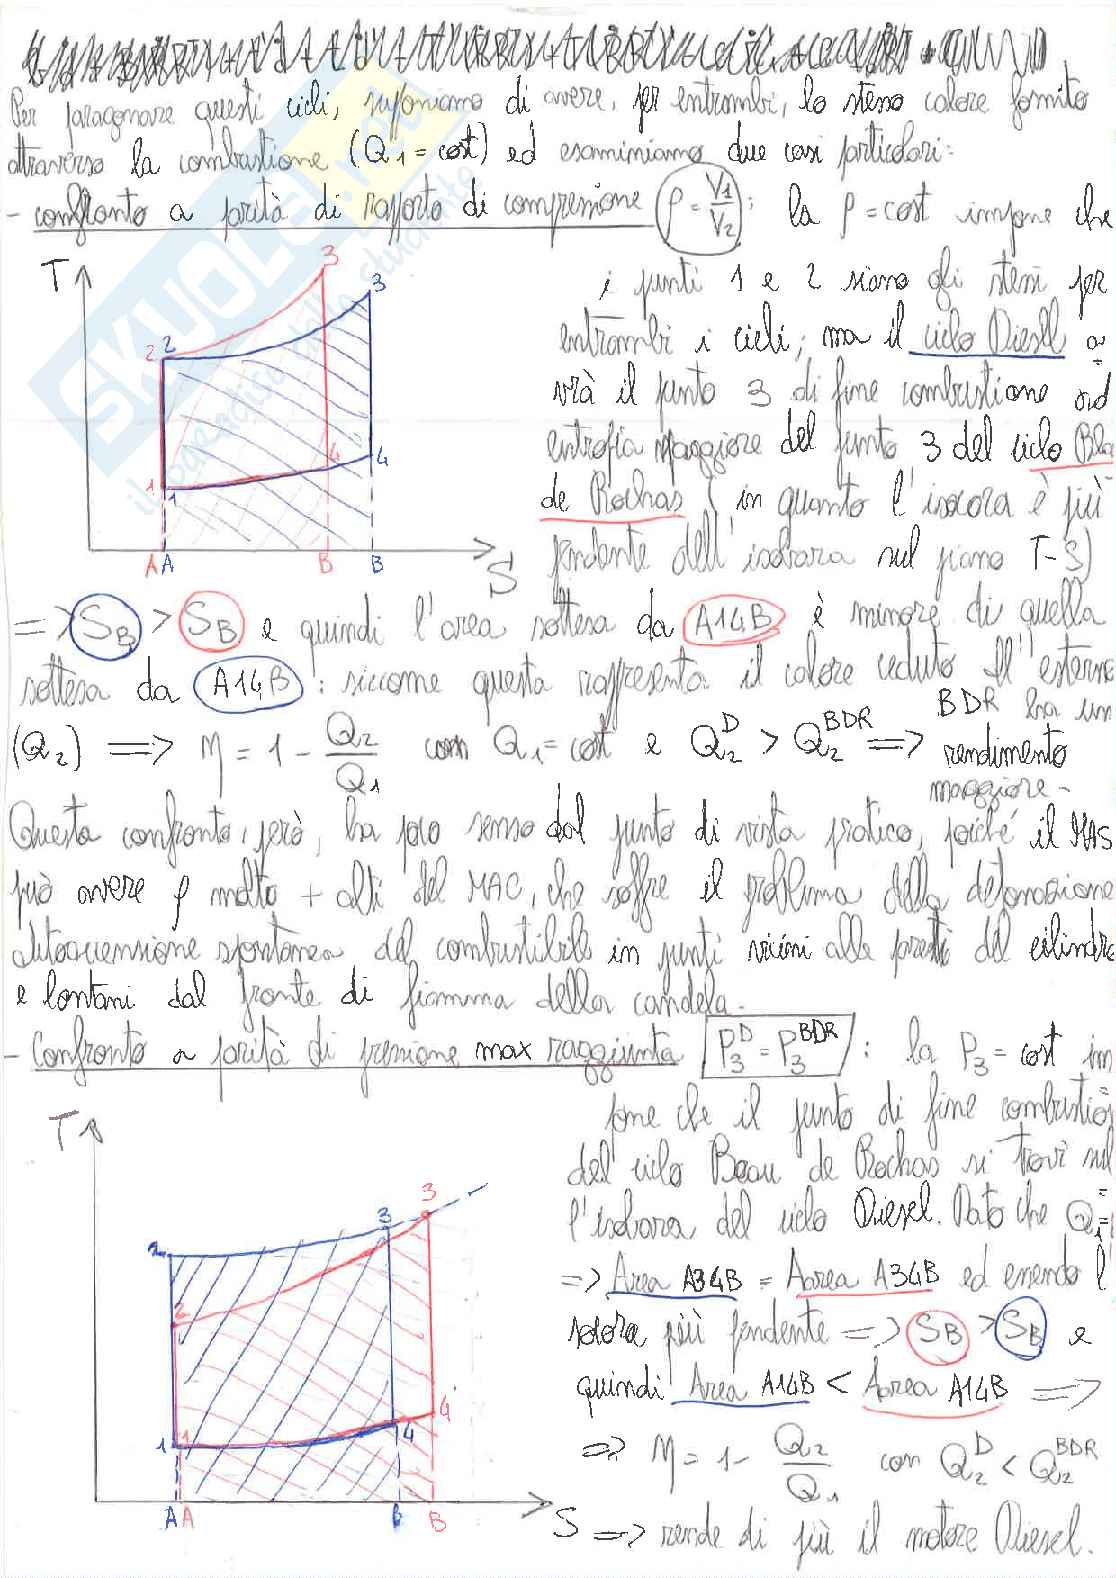 Per paragonare questi cicli, supponiamo di avere, per entrambi, lo stesso calore fornito
attraverso la combustione (Q1 = cost) ed esaminiamo due casi particolari:
- confronto a parità di rapporto di compressione (ρ = V1/V2): la ρ = cost impone che
i punti 1 e 2 siano gli stessi per
entrambi i cicli, ma il ciclo Diesel a=
vrà il punto 3 di fine combustione ad
entropia maggiore del punto 3 del ciclo Bla
de Rochas (in quanto l'isocora è più
pendente dell'isobara sul piano T-S)
T
3
3
2 2
4
4
1 1
A A B B
S
=> SB > SB e quindi l'area sottesa da A14B è minore di quella
sottesa da A14B: siccome questa rappresenta il calore ceduto all'esterno
(Q2) => η = 1 - Q2/Q1 con Q1 = cost e Q2^D > Q2^BDR => BDR ha un
rendimento
maggiore.
Questo confronto, però, ha poco senso dal punto di vista pratico, poiché il MAS
può avere ρ molto + alti del MAC, che soffre il problema della detonazione
Autoaccensione spontanea del combustibile in punti vicini alle pareti del cilindro
e lontani dal fronte di fiamma della candela.
- Confronto a parità di pressione max raggiunta P3^D = P3^BDR : la P3 = cost im
pone che il punto di fine combustio=
del ciclo Beau de Rochas si trovi sul
l'isobara del ciclo Diesel. Dato che Q1=
=> Area A34B = Aarea A34B ed essendo l'
isocora più pendente => SB > SB e
quindi Area A14B < Aarea A14B =>
=> η = 1 - Q2/Q1 con Q2^D < Q2^BDR
=> rende di più il motore Diesel.
T
3
3
2
2
4
4
1 1
A A B B
S
SKUOLA.net